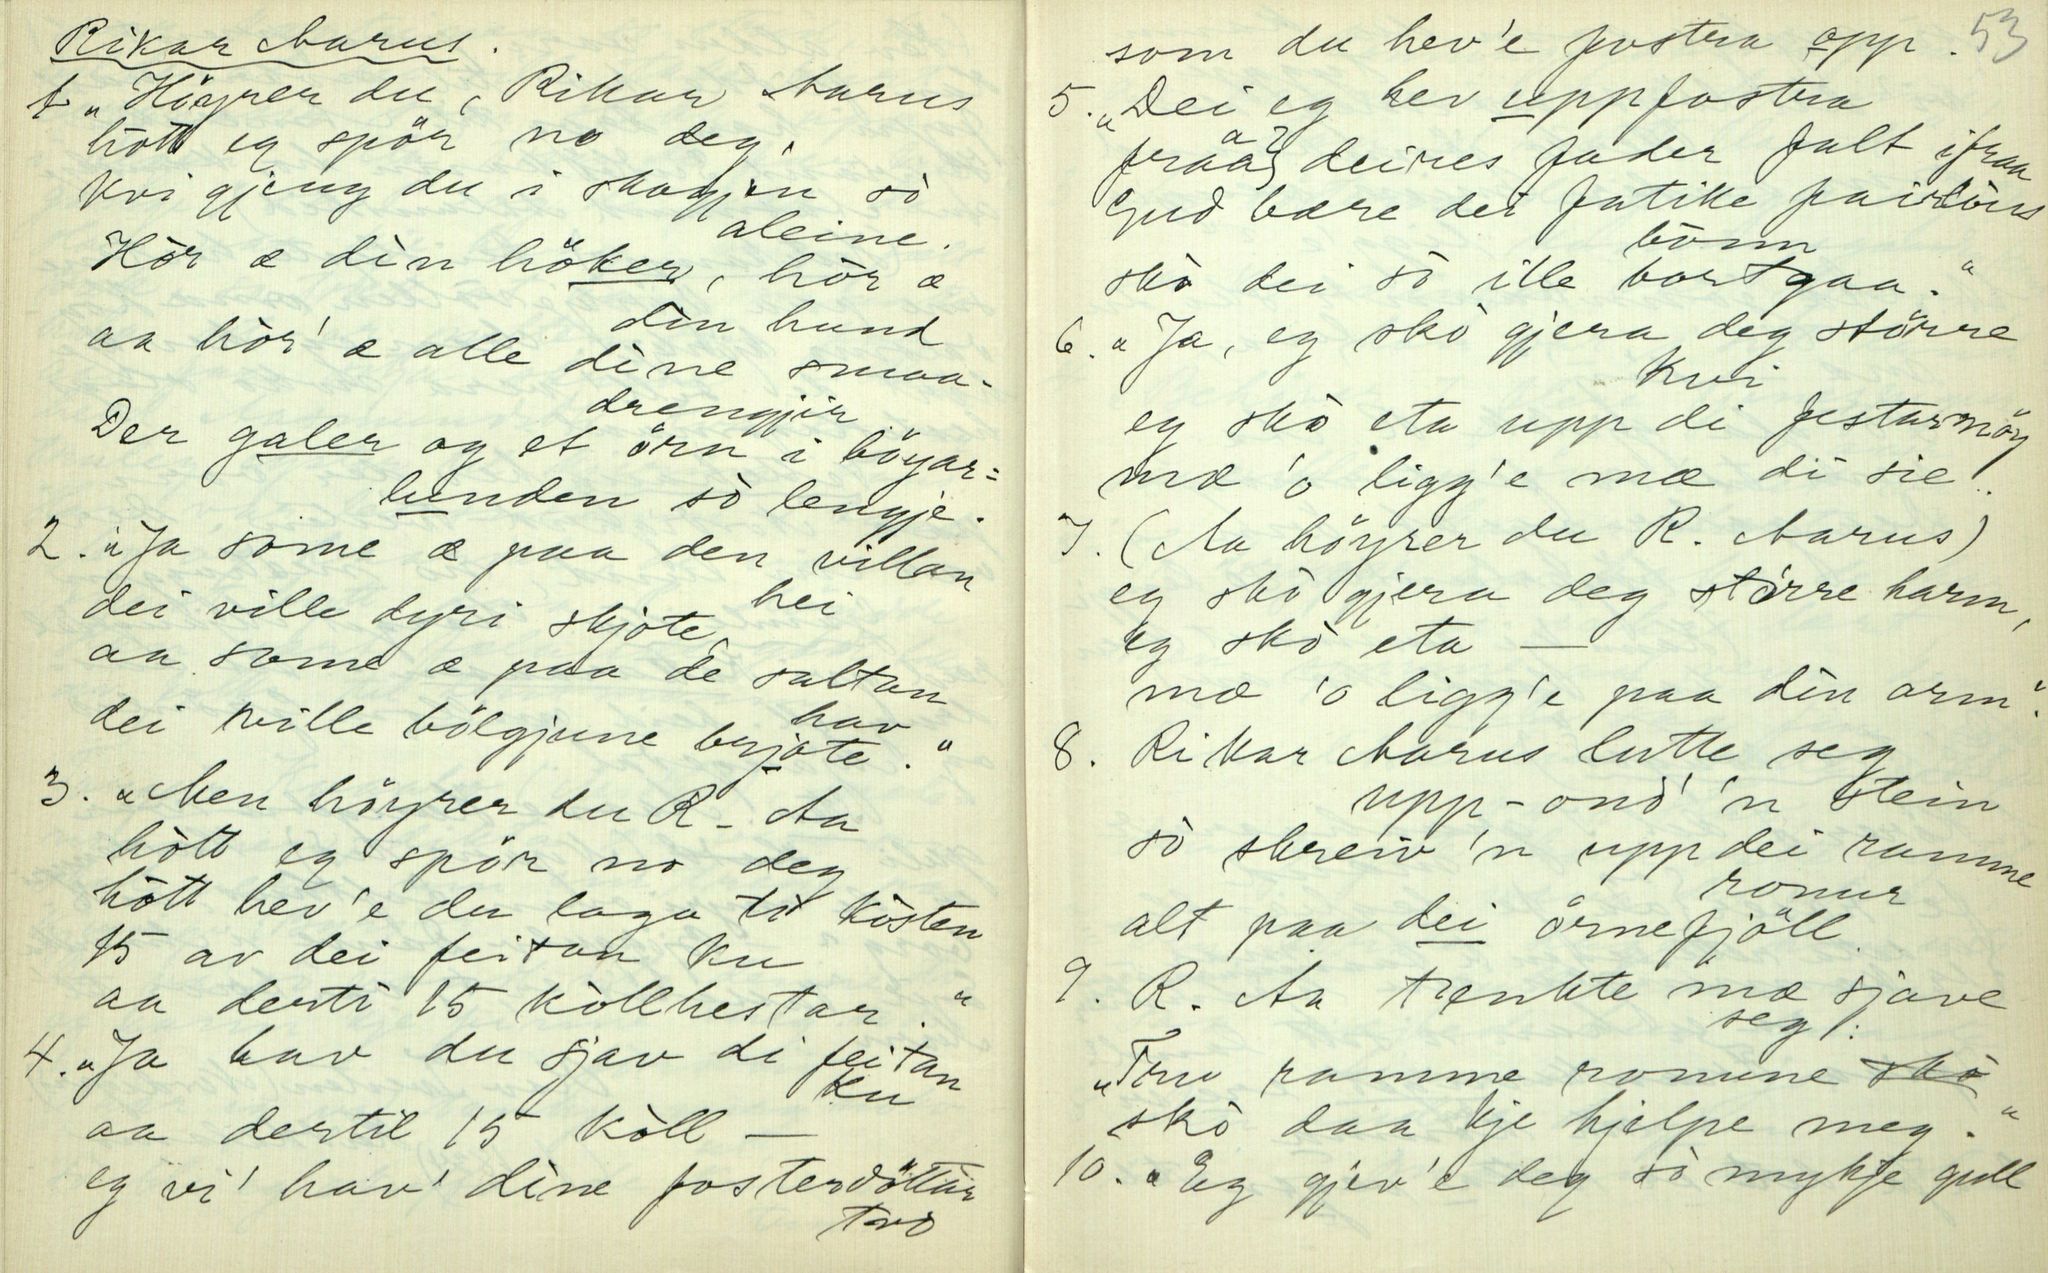 Rikar Aarus.
1. „Höyrer du, Rikar Aarus
hött eg spör no deg,
kvi gjeng du i skogjen sò
aleine.
Hòr æ dìn höker, hòr æ
dìn hund
aa hòr' æ alle dìne smaa-
drengjir
Der galer og et örn i böyar=
lunden sò lengje.
2. „Ja some æ paa den villan
hei
dei ville dyri skjote,
aa some æ paa de saltan
hav
dei ville bölgjune brjote."
3. „Men höyrer du R. Aa
hött eg spör no deg
hött hev'e du laga tì kòsten
15 av dei feitan ku
aa dertì 15 kòllhestar."
4. „Ja hav du sjav di feitan
ku
aa dertil 15 kòll —
eg vi' hav' dìne fosterdöttar
two
53
som du hev'e fostra opp.
5. „Dei eg hev uppfostra
fraa deires fader falt ifraa
Gud bære dei fatike fairlöus
bönn
skò dei sò ille bortgaa."
6. „Ja, eg skò gjera deg större
kvi
eg skò eta upp di festarmöy
mæ 'o ligg'e mæ di sie".
7. (Aa höyrer du R. Aarus)
eg skò gjera deg större harm,
eg skò eta —
mæ 'o ligg'e paa dìn arm".
8. Rikar Aarus lutte seg
upp-onö 'n stein
sò skreiv 'n upp dei ramme
ronur
alt paa dei örnefjöll.
9. R. Aa tænkte mæ sjave
seg:
„Tru ramme ronune skò
skò daa kje hjelpe meg."
10. „Eg gjev'e deg sò mykje gull